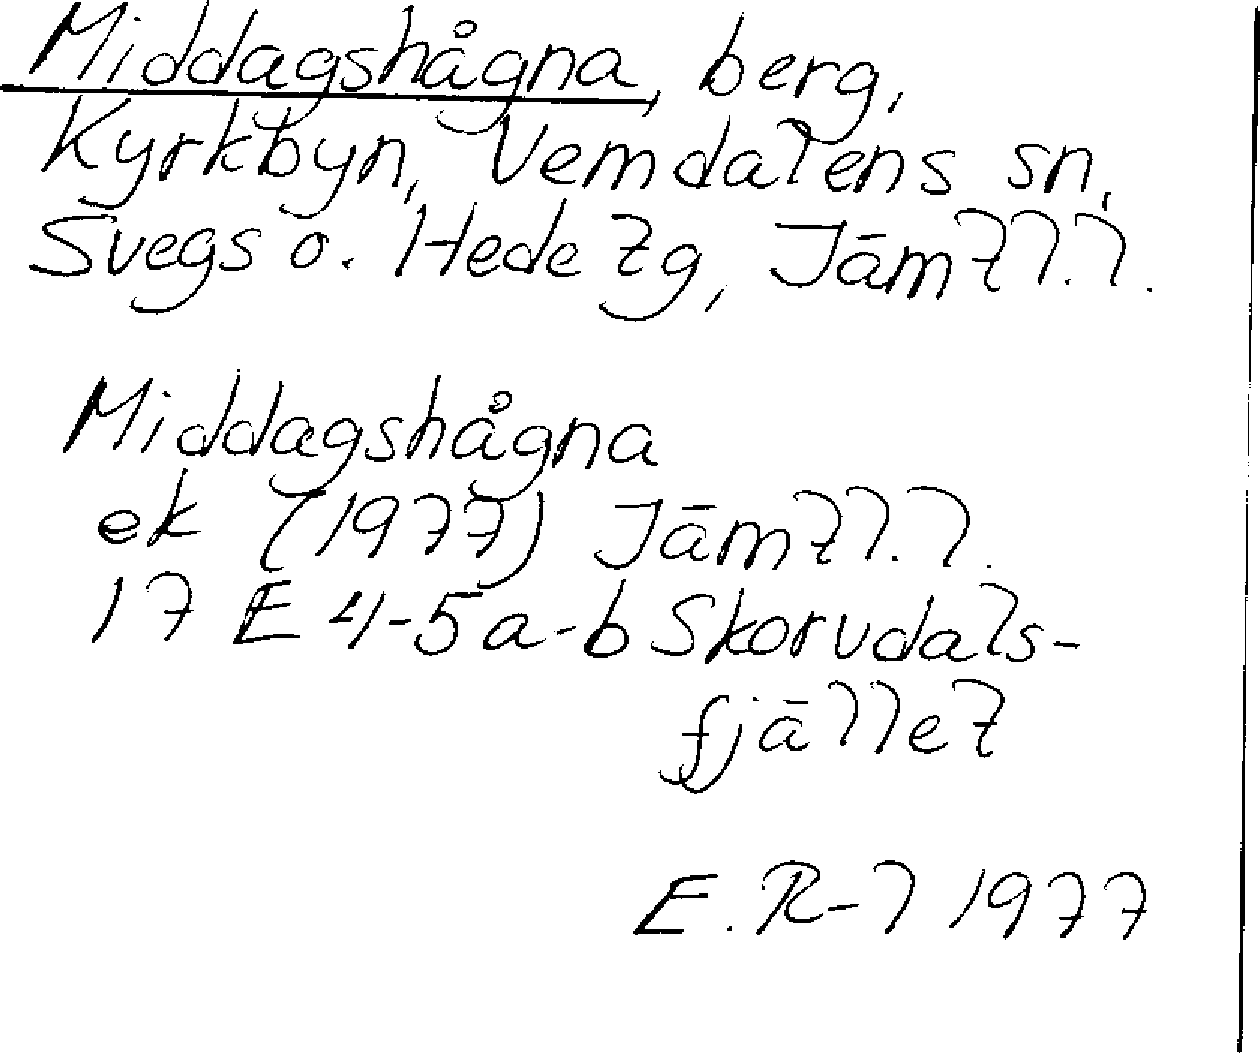 Middagshågna, berg,
Kyrkbyn, Vemdalens sn,
Svegs o. Hede tg, Jämtl.l.
Middagshågna
ek (1977) Jämtl.l.
17 E 4-5 a-b Skorvdals-
fjället
E. R-l 1977